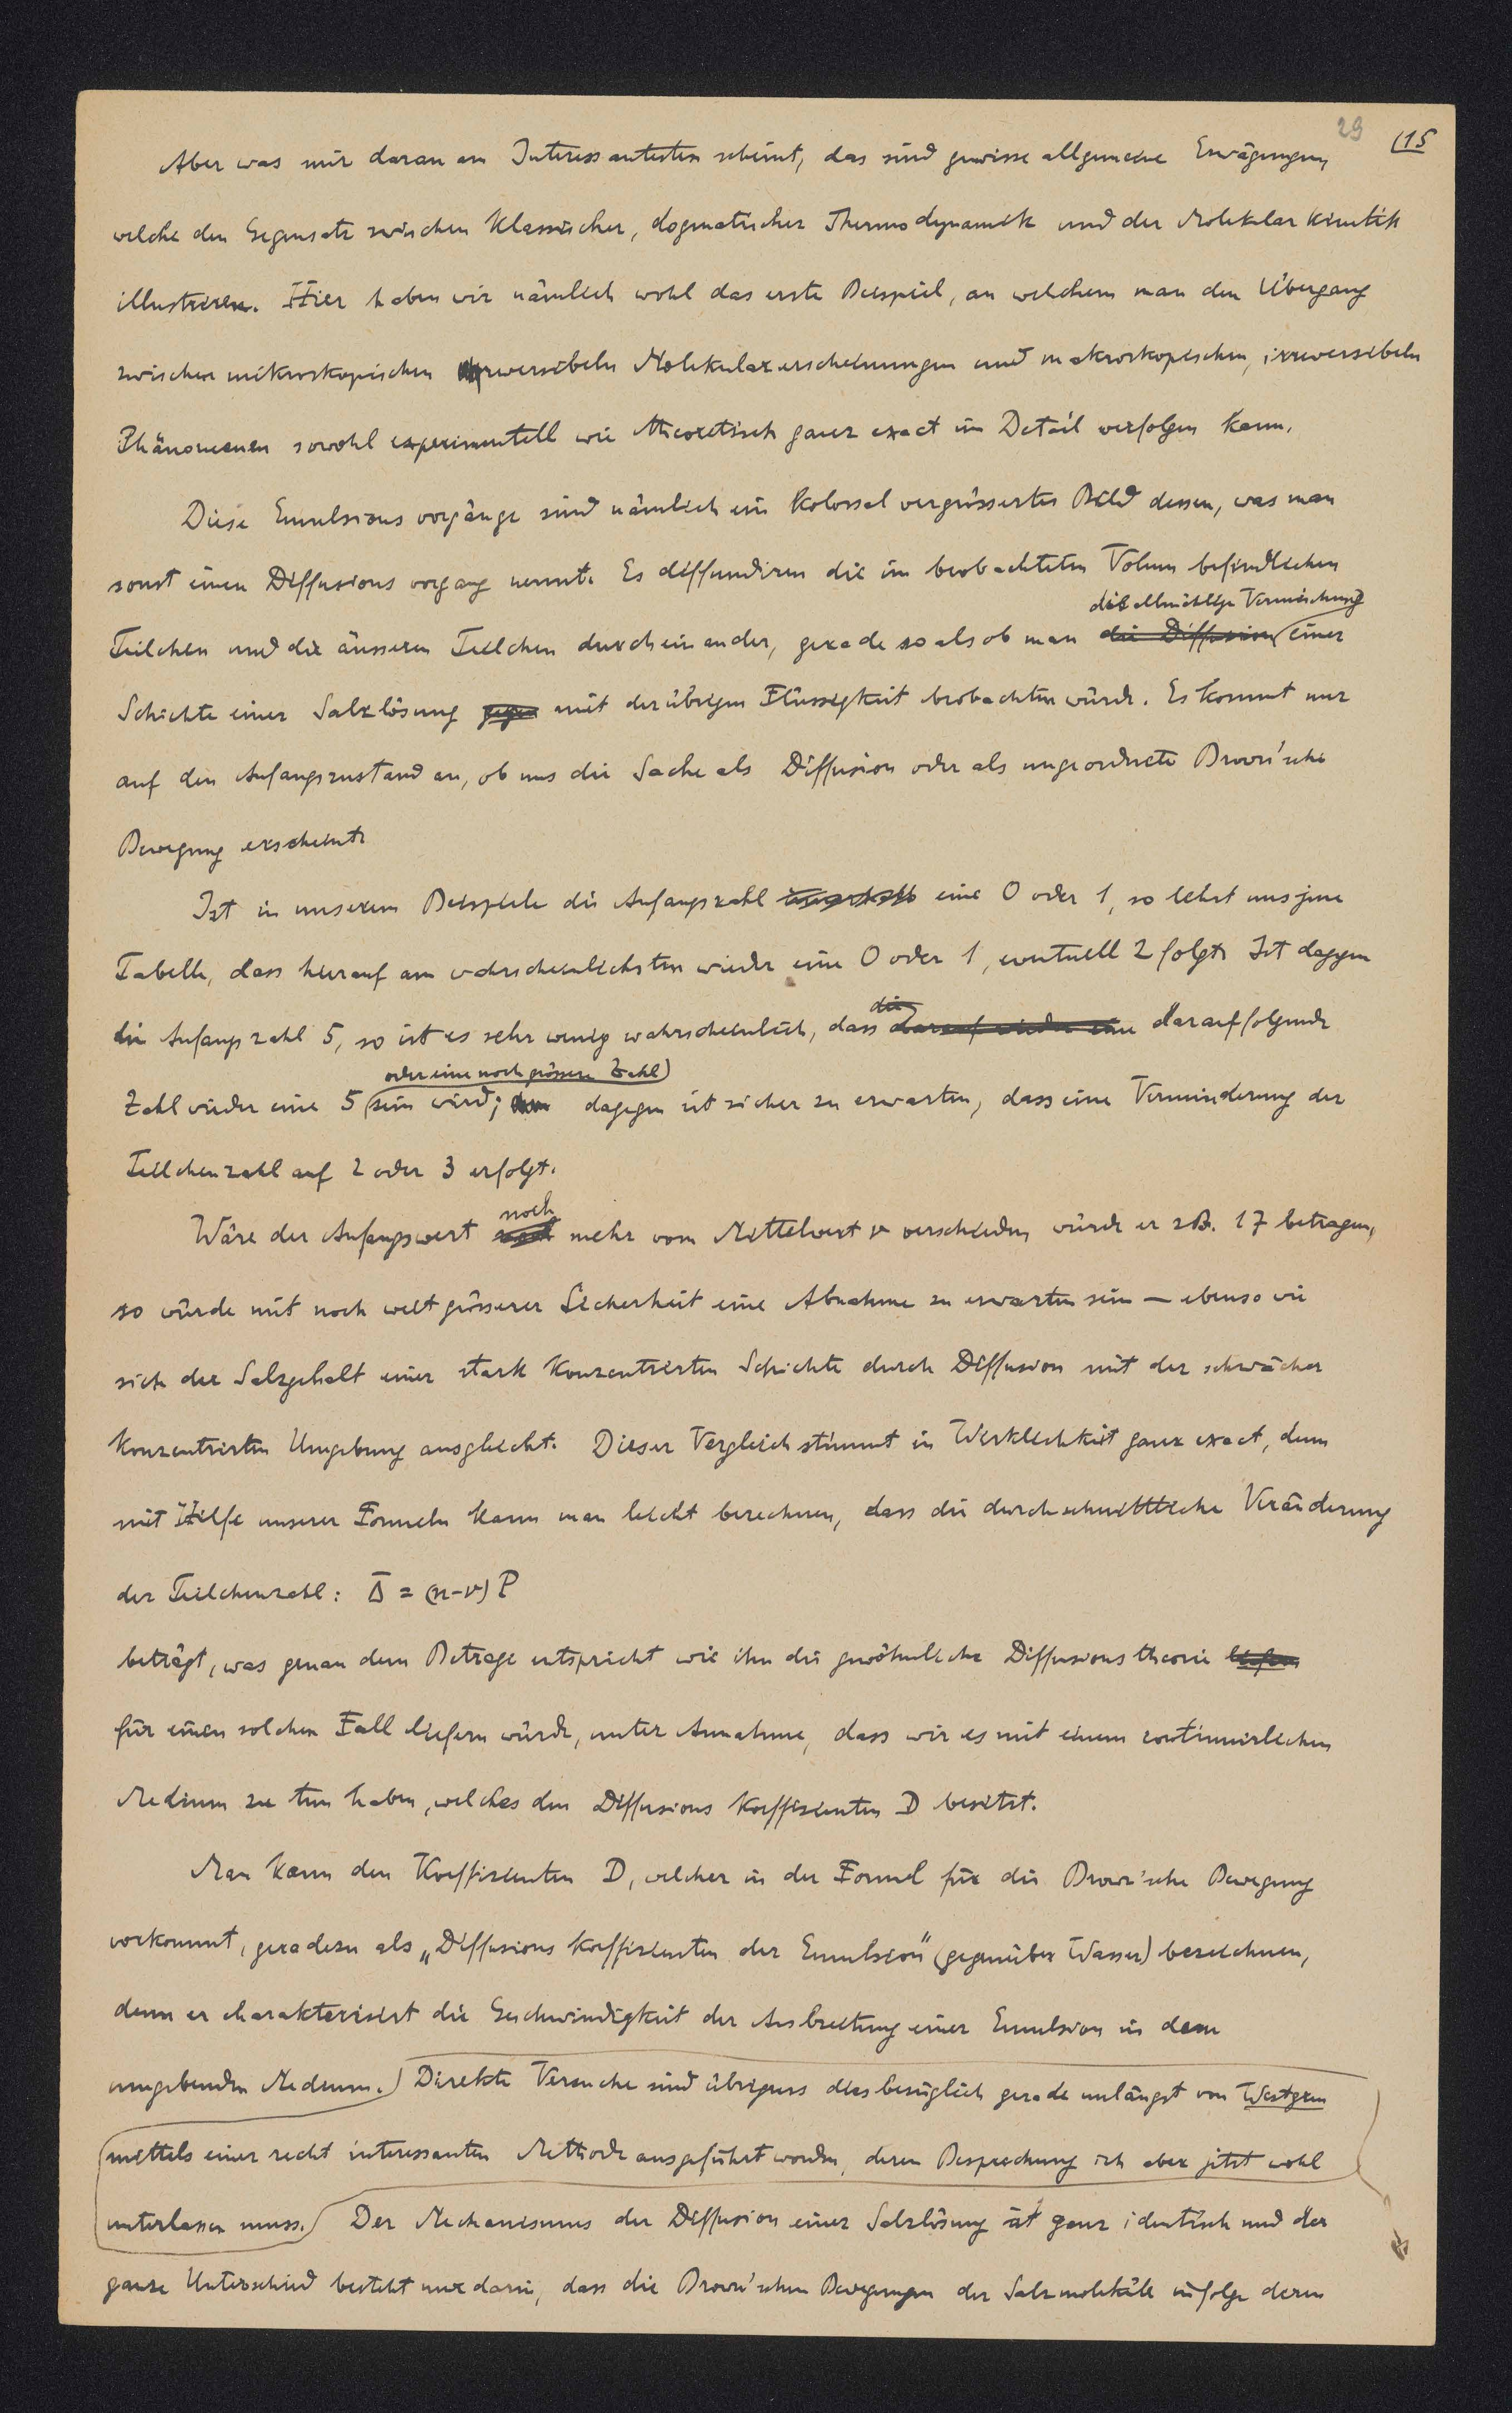 29 (15
Aber was mir daran am Interessantesten scheint, das sind gewisse allgemeine Erwägungen,
welche den Gegensatz zwischen klassischer, dogmatischer Thermodynamik und der Molekularkinetik
illustriren. Hier haben wir nämlich wohl das erste Beispiel, an welchem man den Übergang
zwischen mikroskopischen reversibeln Molekularerscheinungen und makroskopischen, irreversibeln
Phänomenen sowohl experimentell wie theoretisch ganz exact im Detail verfolgen kann.
Diese Emulsionsvorgänge sind nämlich ein kolossal vergrössertes Bild dessen, was man
sonst einen Diffusionsvorgang nennt. Es diffundiren die im beobachteten Volum befindlichen
die allmählige Vermischung
Teilchen und die äusseren Teilchen durcheinander, gerade so als ob man die Diffusion einer
Schichte einer Salzlösung gegen mit der übrigen Flüssigkeit beobachten würde. Es kommt nur
auf den Anfangszustand an, ob uns die Sache als Diffusion oder als ungeordnete Brown'sche
Bewegung erscheint.
Ist in unserem Beispiele die Anfangszahl eine 0 oder 1, so lehrt uns jene
Tabelle, dass hierauf am wahrscheinlichsten wieder eine 0 oder 1, eventuell 2 folgt. Ist dagegen
die
die Anfangszahl 5, so ist es sehr wenig wahrscheinlich, dass darauf wieder eine darauffolgende
oder eine noch grössere Zahl
Zahl wieder eine 5 sein wird; dagegen ist sicher zu erwarten, dass eine Verminderung der
Teilchenzahl auf 2 oder 3 erfolgt.
noch
Wäre der Anfangswert mehr vom Mittelwert ν verschieden, würde er z.B. 17 betragen,
so würde mit noch weit grösserer Sicherheit eine Abnahme zu erwarten sein — ebenso wie
sich der Salzgehalt einer stark konzentrirten Schichte durch Diffusion mit der schwächer
konzentrirten Umgebung ausgleicht. Dieser Vergleich stimmt in Wirklichkeit ganz exact, denn
mit Hilfe unserer Formeln kann man leicht berechnen, dass die durchschnittliche Veränderung
der Teilchenzahl: Δ̄ = (n-ν) P
beträgt, was genau dem Betrage entspricht wie ihn die gewöhnliche Diffusionstheorie liefern
für einen solchen Fall liefern würde, unter Annahme, dass wir es mit einem continuirlichen
Medium zu tun haben, welches den Diffusions Koeffizienten D besitzt.
Man kann den Koeffizienten D, welcher in der Formel für die Brown'sche Bewegung
vorkommt, geradezu als „Diffusions Koeffizienten der Emulsion" (gegenüber Wasser) bezeichnen,
denn er charakterisirt die Geschwindigkeit der Ausbreitung einer Emulsion in dem
umgebenden Medium. Direkte Versuche sind übrigens diesbezüglich gerade unlängst von Westgren
mittels einer recht interessanten Methode ausgeführt worden, deren Besprechung ich aber jetzt wohl
unterlassen muss. Der Mechanismus der Diffusion einer Salzlösung ist ganz identisch und der
ganze Unterschied besteht nur darin, dass die Brown'schen Bewegungen der Salzmoleküle infolge deren